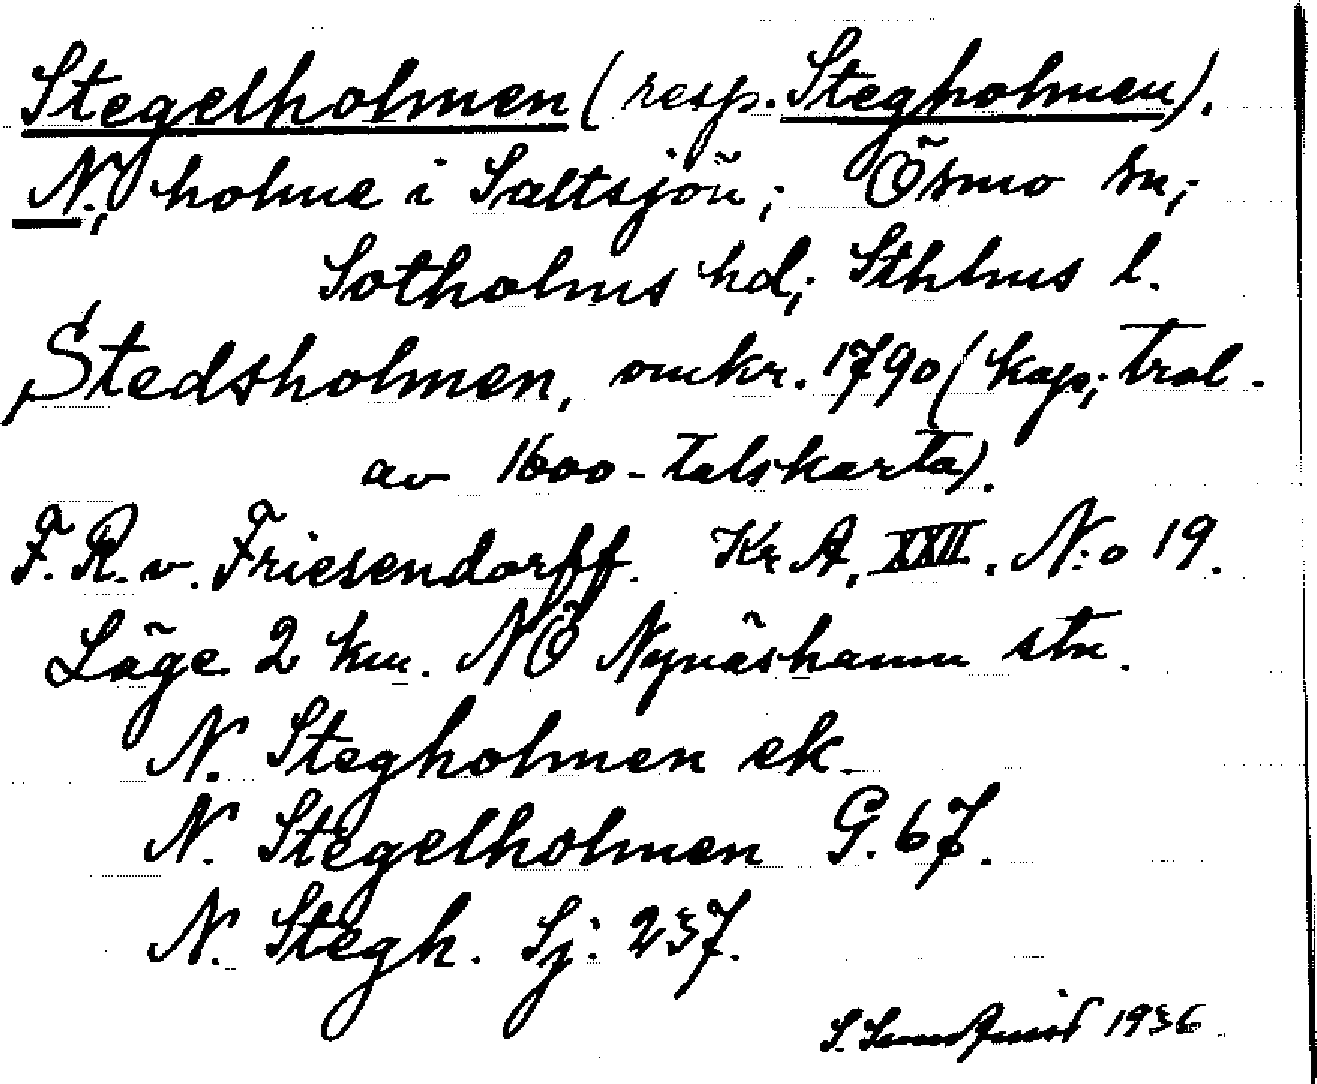 Stegelholmen (resp. Stegholmen).
N., holme i Saltsjön; Ösmo sn;
Sotholms hd; Sthlms l.
Stedsholmen, omkr. 1790 (kop; trol.
av 1600-talskarta).
F. R. v. Friesendorff. Kr A, XXII. N:o 19.
Läge 2 km. NÖ Nynäshamn stn.
N. Stegholmen ek.
N. Stegelholmen G. 67.
N. Stegh. Sj. 237.
S. Sundqvist 1936